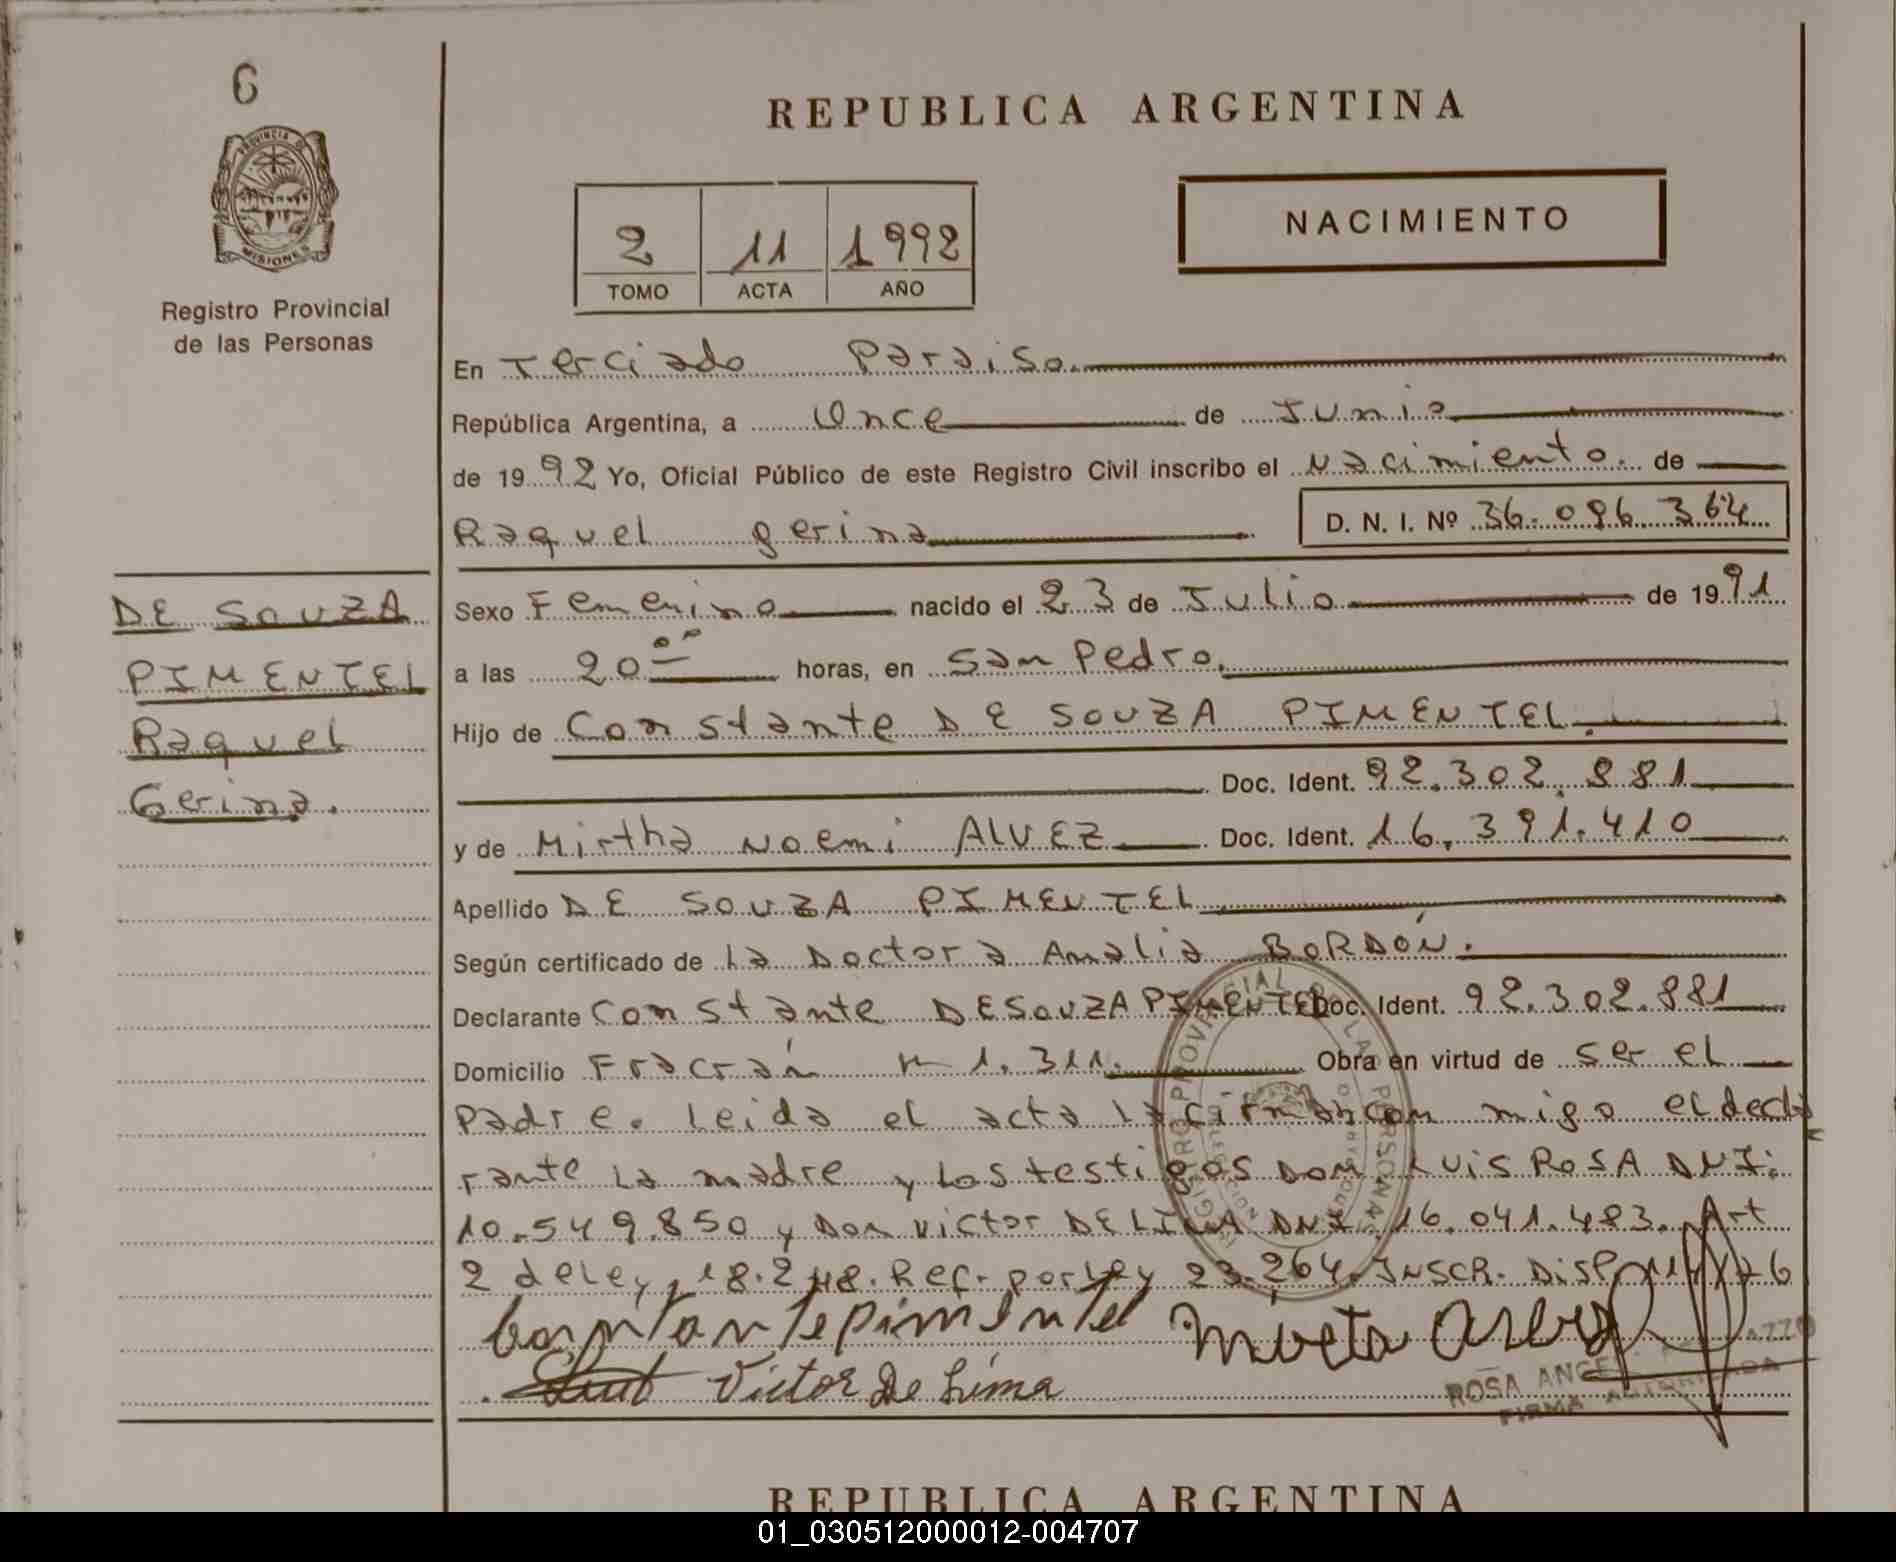 6
PROVINCIA DE
MISIONES
Registro Provincial
de las Personas
REPUBLICA ARGENTINA
2 11 1992
TOMO ACTA AÑO
NACIMIENTO
En Terciado Paraiso.
República Argentina, a Once de Junio
de 1992 Yo, Oficial Público de este Registro Civil inscribo el Nacimiento. de
Raquel gerina
D. N. I. Nº 36.086.364
DE SOUZA
PIMENTEL
Raquel
Gerina.
Sexo Femenino nacido el 23 de Julio de 1991
a las 20 00 horas, en San Pedro.
Hijo de Constante DE SOUZA PIMENTEL.
Doc. Ident. 92.302.881
y de Mirtha Noemi ALVEZ Doc. Ident. 16.391.410
Apellido DE SOUZA PIMENTEL
Según certificado de La Doctora Amalia BORDÓN.
Declarante Constante DE SOUZA PIMENTEL Doc. Ident. 92.302.881
Domicilio Fracrán 1.311. Obra en virtud de ser el
padre. Leida el acta la firman con migo el decla
rante la madre y los testigos Don LUIS ROSA DNI:
10.549.850 y Don Victor DE LIMA DNI. 16.041.483. Art
2 de Ley, 18.248. Ref. por Ley 23.264. INSCR. Disp
Victor De Lima
ROSA
FIRMA AUTORIZADA
REPUBLICA ARGENTINA
01_030512000012-004707